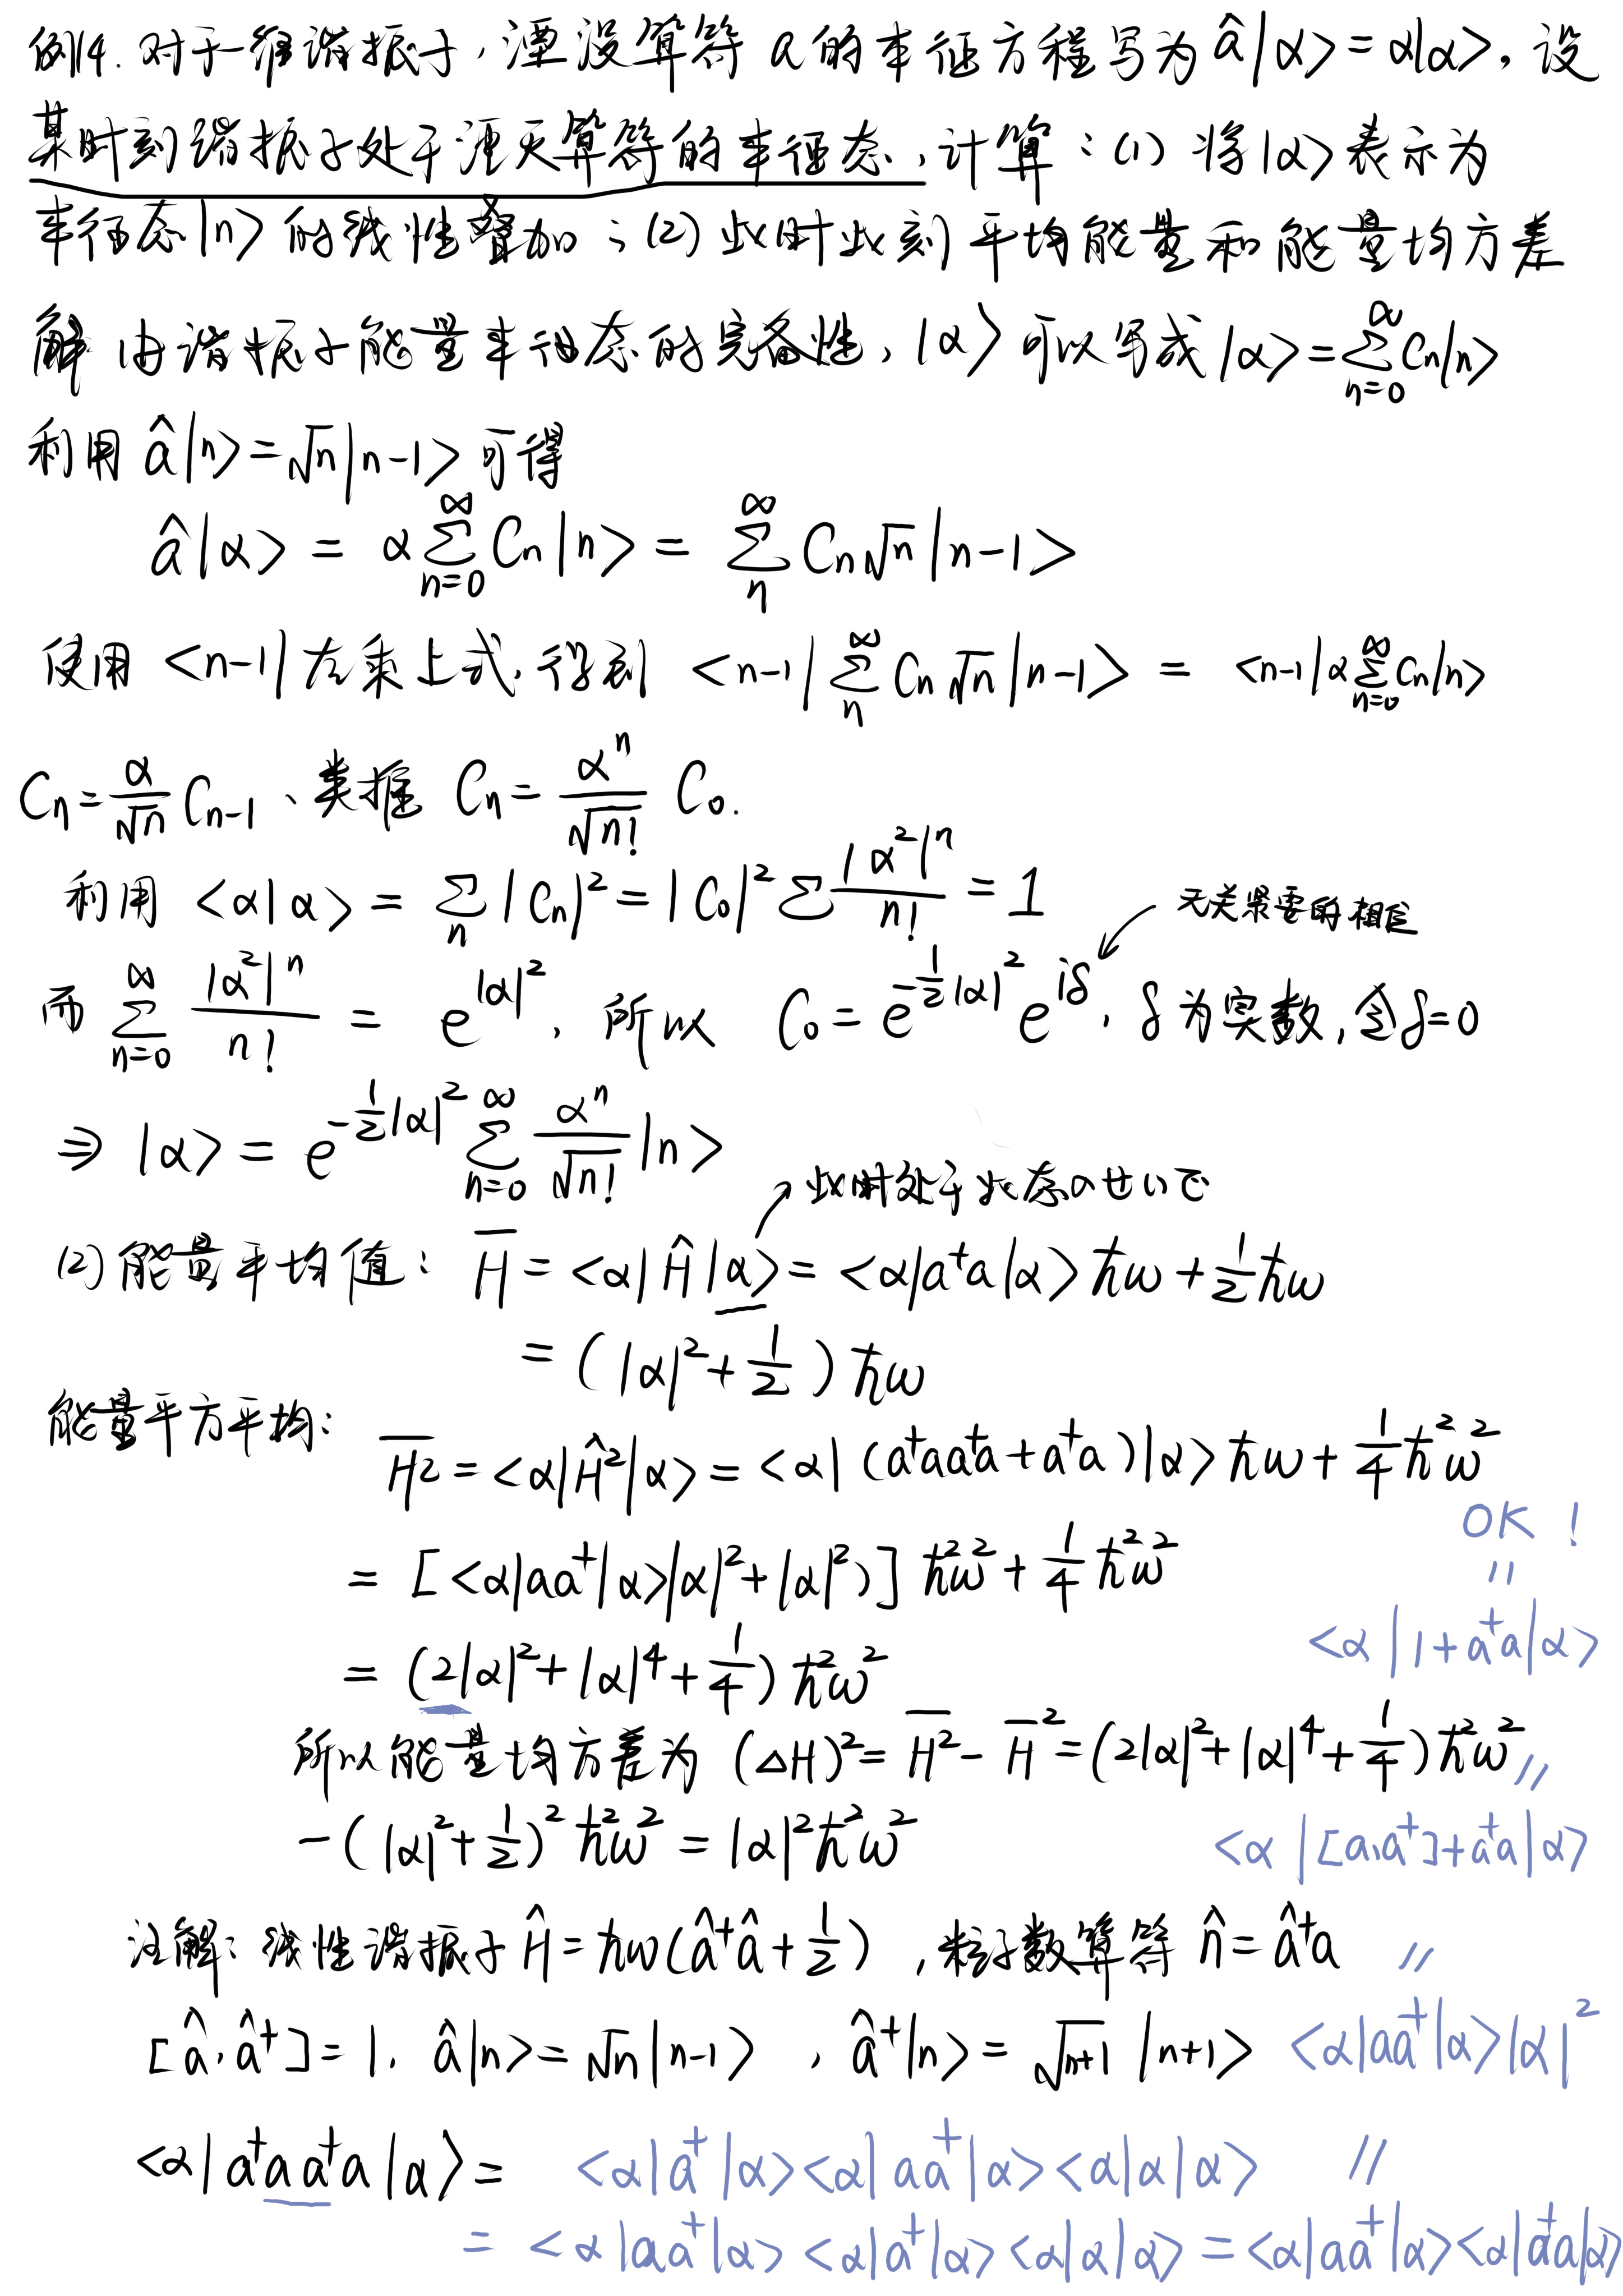 例14. 对于一维谐振子，湮没算符 a 的本征方程写为 â|α> = α|α>，设
某时刻谐振子处于湮灭算符的本征态，计算：(1) 将|α> 表示为
本征态|n> 的线性叠加；(2) 此时此刻平均能量和能量均方差
解 由谐振子能量本征态的完备性，|α> 可以写成 |α> = ∑_{n=0}^{∞} Cn|n>
利用 â|n> = √n|n-1> 可得
â|α> = α∑_{n=0}^{∞} Cn|n> = ∑_{n}^{∞} Cn√n|n-1>
使用 <n-1| 左乘上式，得到 <n-1|∑_{n}^{∞} Cn√n|n-1> = <n-1|α∑_{n=0}^{∞} Cn|n>
Cn = α/√n C_{n-1}、类推 Cn = α^n/√n! C₀.
利用 <α|α> = ∑_n |Cn|² = |C₀|² ∑ |α²|^n/n! = 1
无关紧要的相位
而 ∑_{n=0}^{∞} |α²|^n/n! = e^{|α|²}，所以 C₀ = e^{-½|α|²} e^{iδ}，δ为实数，令δ=0
⇒ |α> = e^{-½|α|²} ∑_{n=0}^{∞} α^n/√n! |n>
此时处于此态のせいで
(2) 能量平均值： H̅ = <α|Ĥ|α> = <α|a⁺a|α>ħω + ½ħω
= (|α|² + ½)ħω
能量平方平均：
H̅²̅ = <α|Ĥ²|α> = <α|(a⁺aa⁺a + a⁺a)|α>ħω + ¼ħ²ω²
= [<α|aa⁺|α>|α|² + |α|²)] ħ²ω² + ¼ħ²ω²
= (2|α|² + |α|⁴ + ¼) ħ²ω²
所以能量均方差为 (ΔH)² = H̅²̅ - H̅² = (2|α|² + |α|⁴ + ¼)ħ²ω²
-(|α|² + ½)² ħ²ω² = |α|²ħ²ω²
注解：线性谐振子 Ĥ = ħω(â⁺â + ½)，粒子数算符 n̂ = â⁺a
[â, â⁺] = 1. â|n> = √n|n-1> ，â⁺|n> = √n+1 |n+1>
<α|a⁺aa⁺a|α> = <α|a⁺|α><α|aa⁺|α><α|α|α>
= <α|aa⁺|α><α|a⁺|α><α|α|α> = <α|aa⁺|α><α|a⁺a|α>
//
<α|aa⁺|α>|α|²
//
<α|[a,a⁺]+a⁺a|α>
//
<α|1+a⁺a|α>
//
OK !